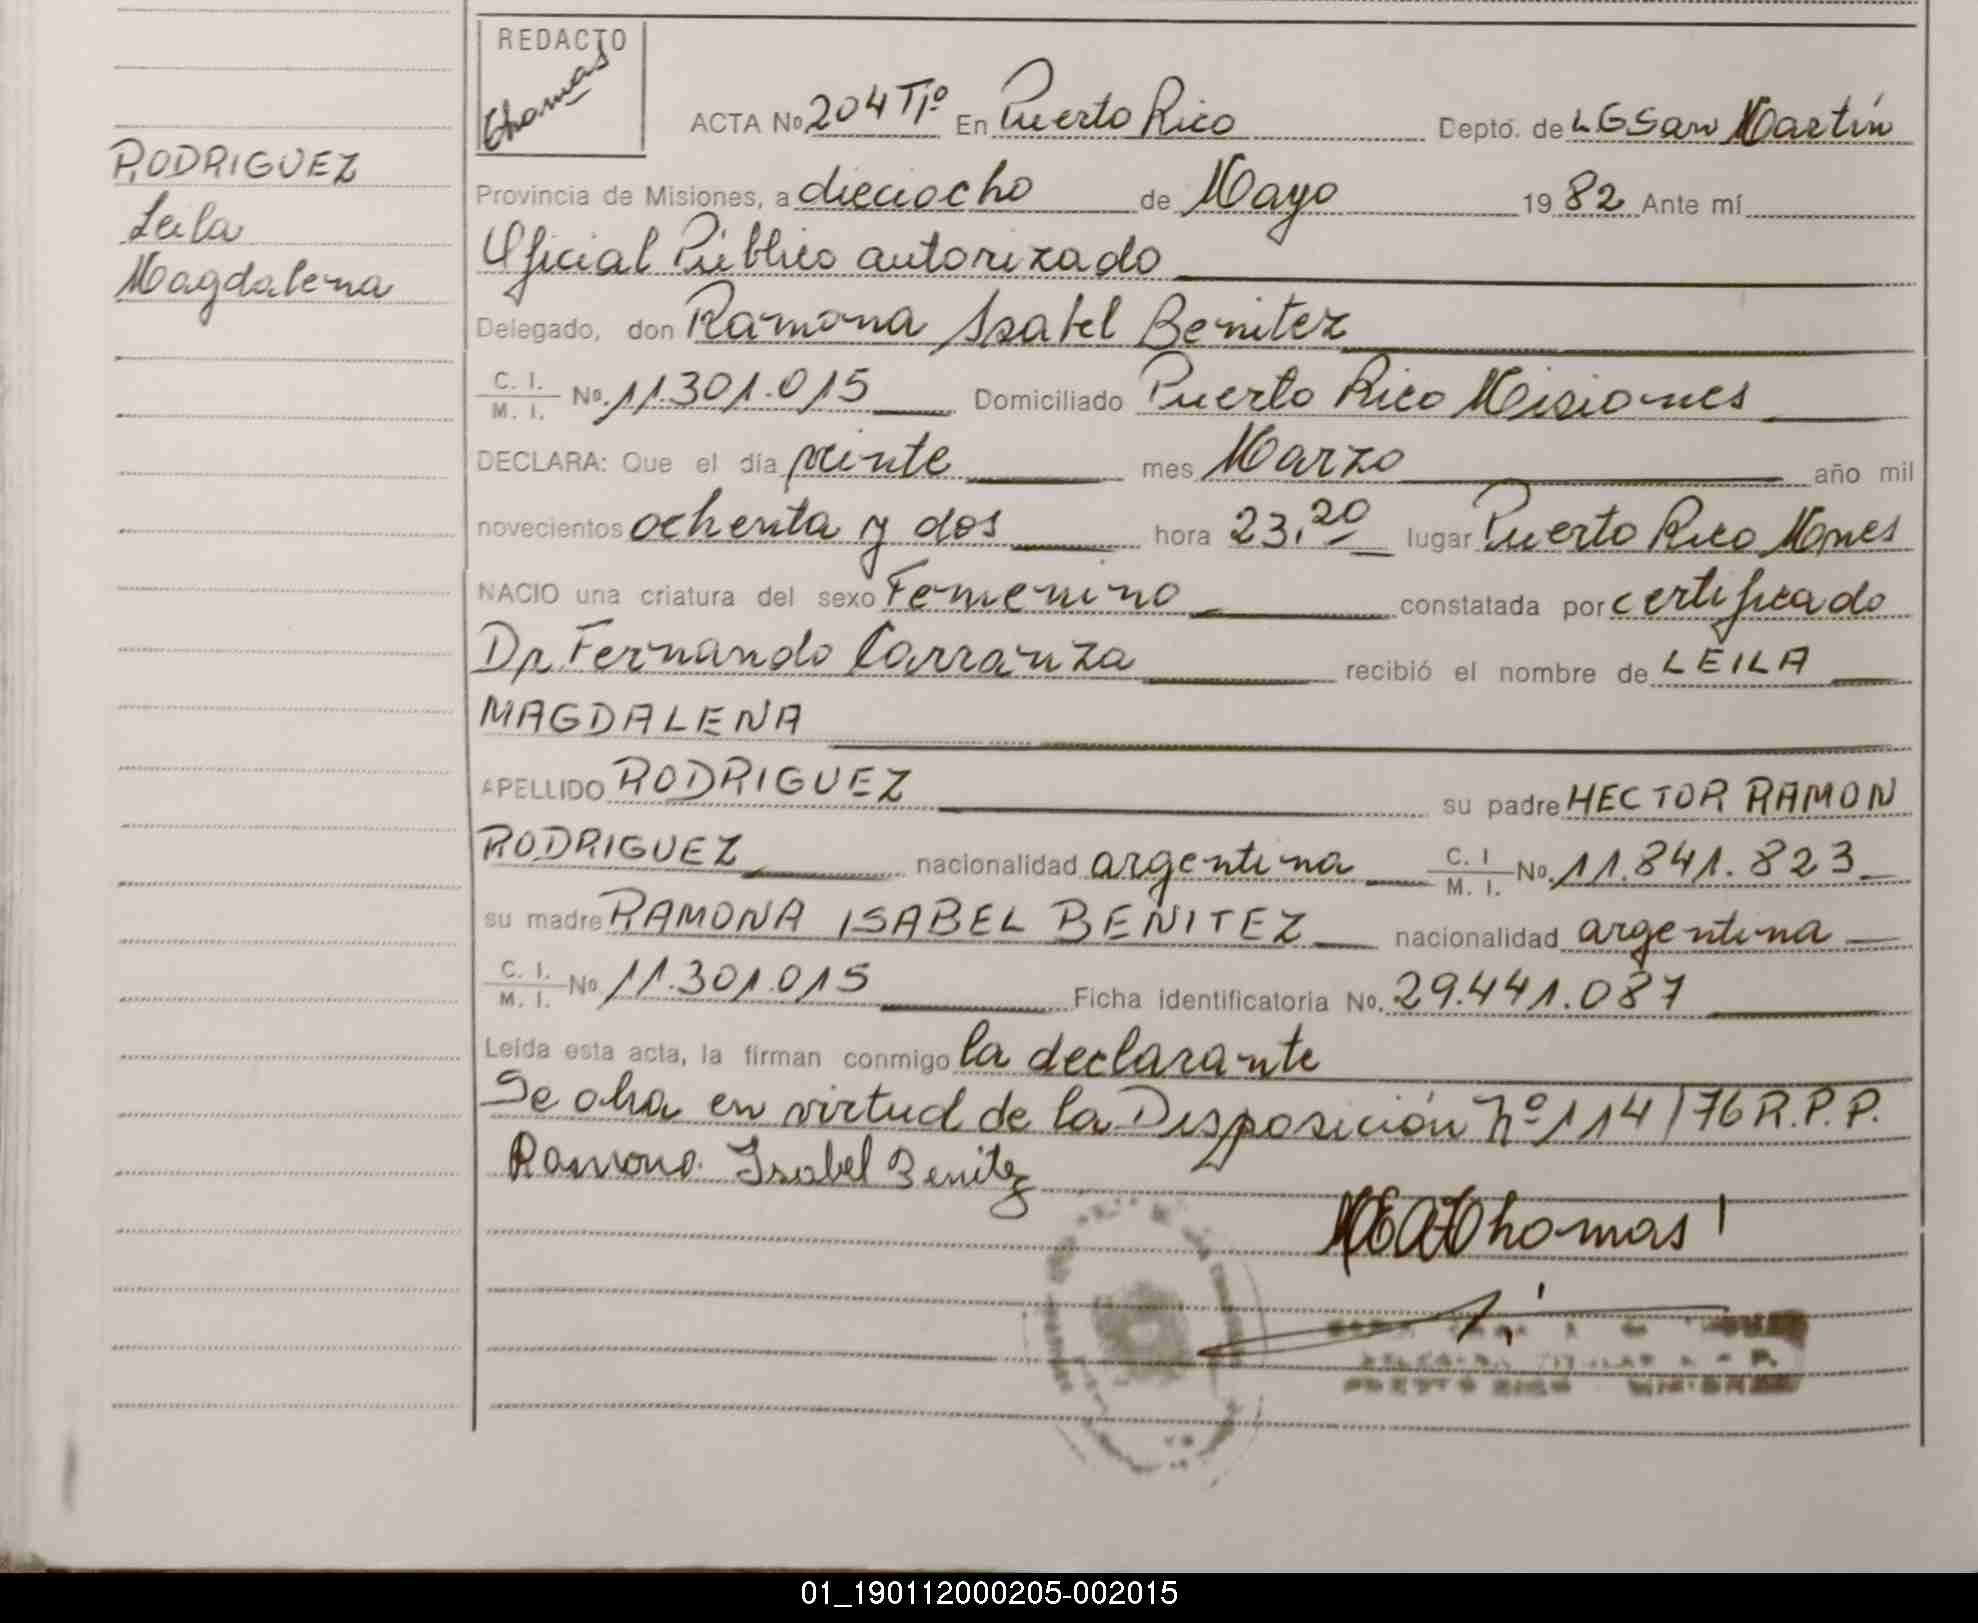 REDACTO
Thomas
RODRIGUEZ
Leila
Magdalena
ACTA No 204 Tº En Puerto Rico Depto. de L G San Martín
Provincia de Misiones, a dieciocho de Mayo 1982 Ante mí
Oficial Público autorizado
Delegado, don Ramona Isabel Benitez
C. I. M. I. No. 11.301.015 Domiciliado Puerto Rico Misiones
DECLARA: Que el día veinte mes Marzo año mil
novecientos ochenta y dos hora 23,20 lugar Puerto Rico Mnes
NACIO una criatura del sexo Femenino constatada por certificado
Dr. Fernando Carranza recibió el nombre de LEILA
MAGDALENA
APELLIDO RODRIGUEZ su padre HECTOR RAMON
RODRIGUEZ nacionalidad argentina C. I M. I. No. 11.841.823
su madre RAMONA ISABEL BENITEZ nacionalidad argentina
C. I. M. I. No 11.301.015 Ficha identificatoria No. 29.441.087
Leída esta acta, la firman conmigo la declarante
Se obra en virtud de la Disposición Nº 114/76 R.P.P.
Ramona Isabel Benitez
Thomas
PUERTO RICO MISIONES
01_190112000205-002015